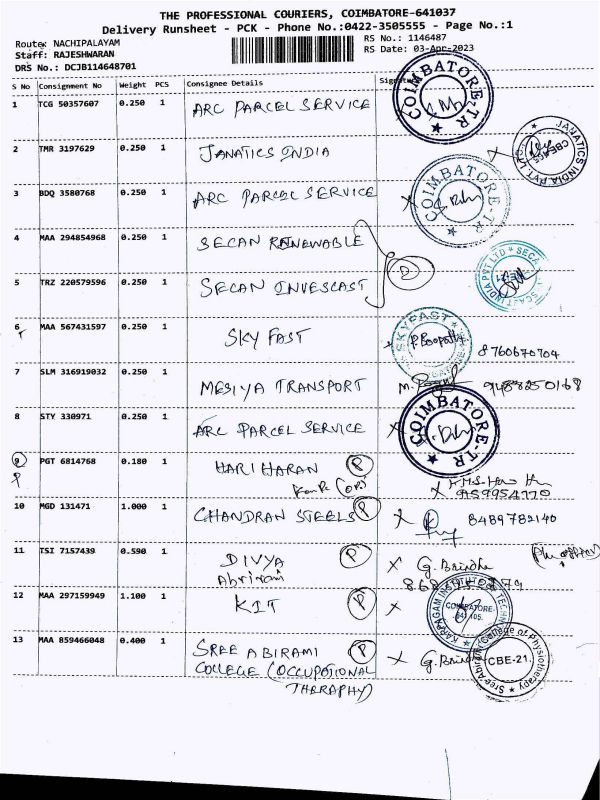 THE PROFESSIONAL COURIERS, COIMBATORE-641037
Delivery Runsheet - PCK - Phone No.:0422-3505555 - Page No.:1
Route: NACHIPALAYAM
RS No.: 1146487
Staff: RAJESHWARAN
RS Date: 03-Apr-2023
DRS No.: DCJB114648701
S No Consignment No Weight PCS Consignee Details Signature
1 TCG 50357607 0.250 1 ARC PARCEL SERVICE COIMBATORE-TR
2 TMR 3197629 0.250 1 JANATICS INDIA X JANATICS INDIA PVT. LTD
3 BDQ 3580768 0.250 1 ARC PARCEL SERVICE X COIMBATORE-TR
4 MAA 294854968 0.250 1 SECAN RENEWABLE D
5 TRZ 220579596 0.250 1 SECAN INVESCAST
6 MAA 567431597 0.250 1 SKY FAST SKYFAST P. Boopathi 8760670704
7 SLM 316919032 0.250 1 MESIYA TRANSPORT 9488250168
8 STY 330971 0.250 1 ARC PARCEL SERVICE X COIMBATORE-TR
9 P PGT 6814768 0.180 1 HARI HARAN P
10 MGD 131471 1.000 1 CHANDRAN STEELS P X 8489782140
11 TSI 7157439 0.590 1 DIVYA P X G. Brindha
Abrirami
12 MAA 297159949 1.100 1 KIT P X COIMBATORE-
641 105.
13 MAA 859466048 0.400 1 SREE ABIRAMI P X G. Brindha CBE-21.
COLLEGE (OCCUPOTIONAL Sree Abirami College of Physiotherapy
THERAPHY)